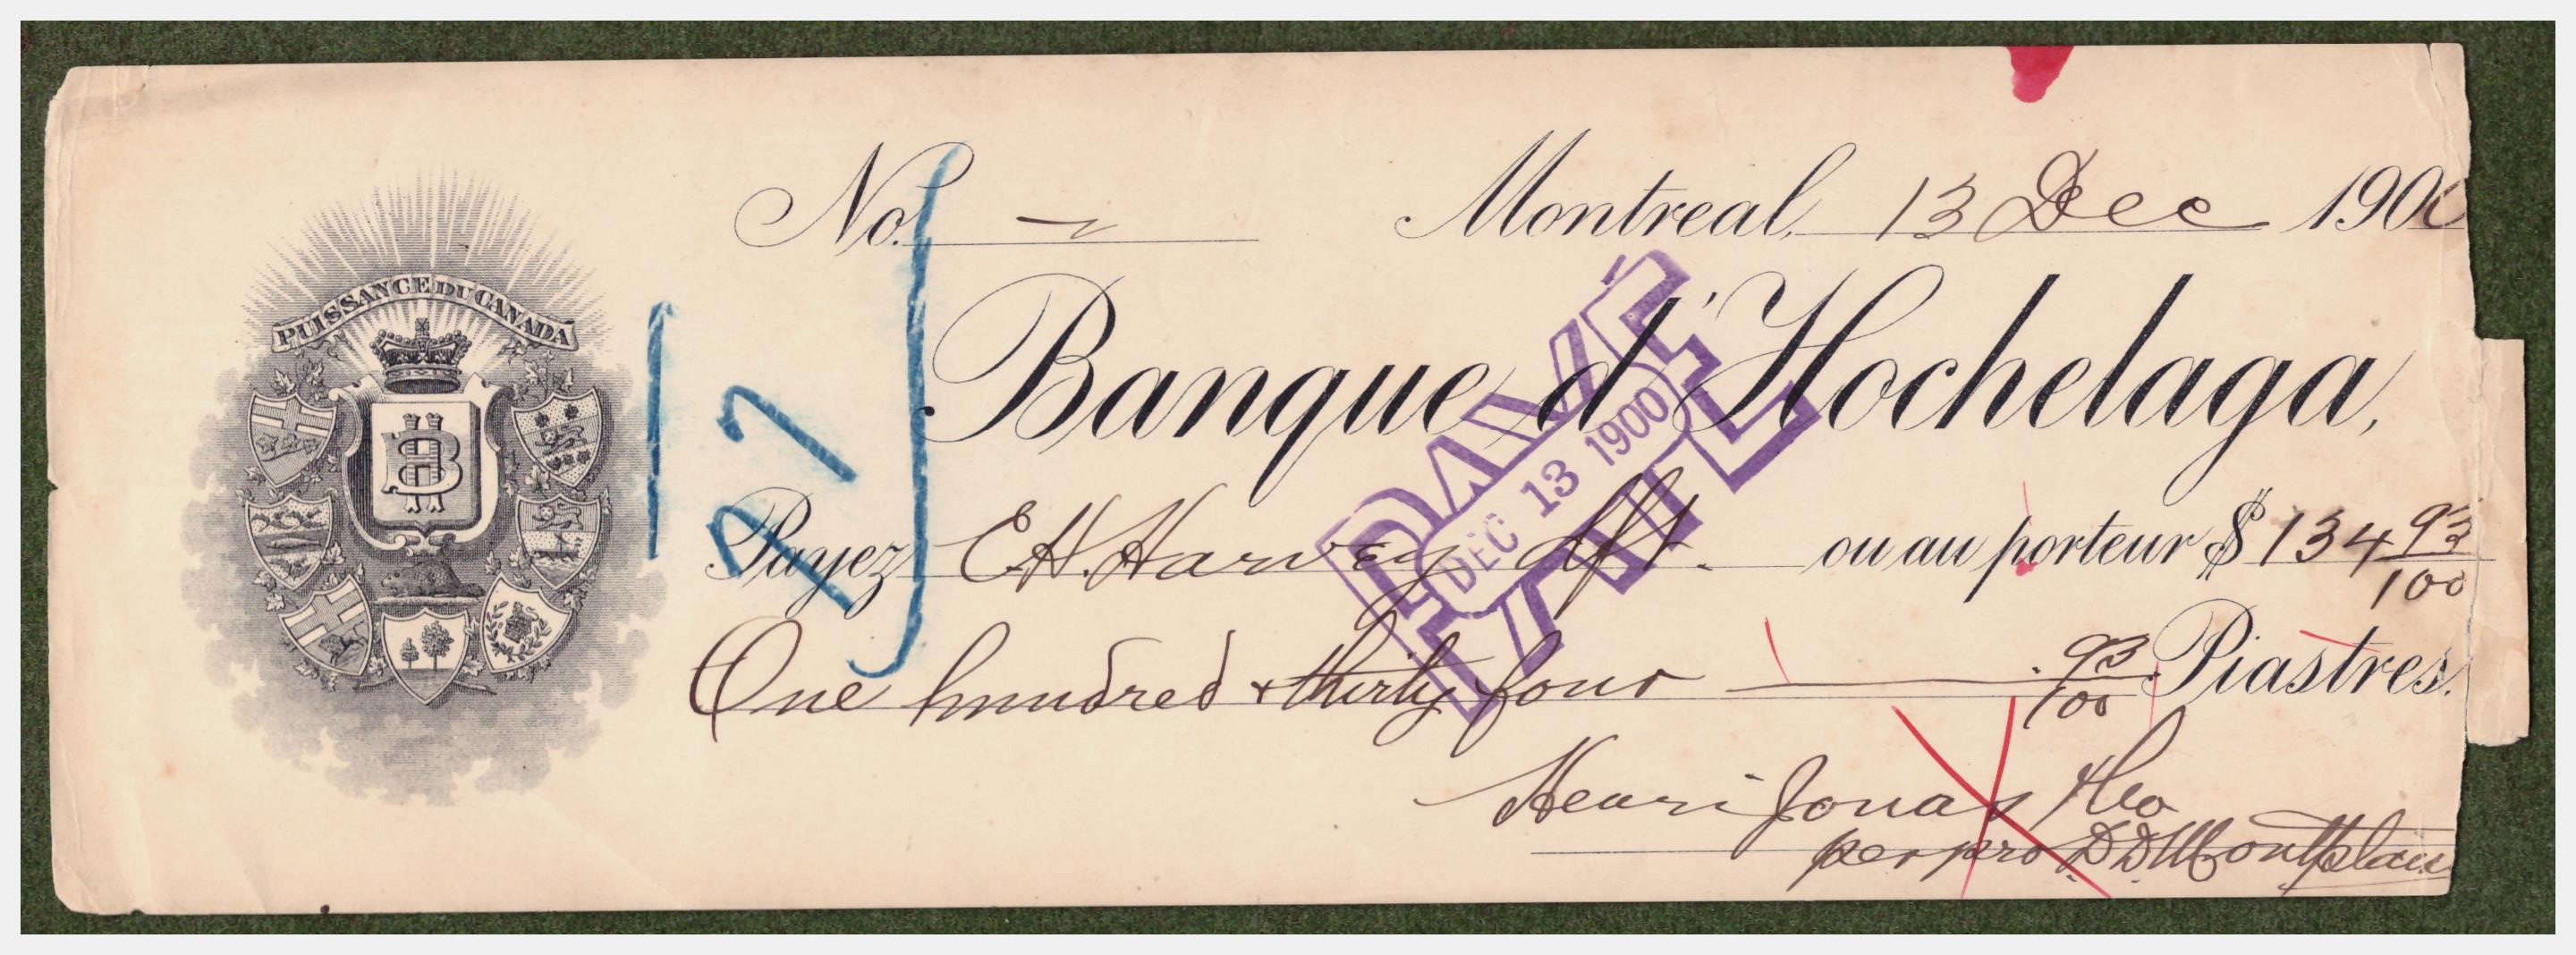 No. Montréal, 13 Dec 1900
PUISSANCE DU CANADA
BH
Banque d'Hochelaga,
PAYÉ
DEC 13 1900
Payez E H. Harvey ou au porteur $ 134 93/100
One hundred & thirty four 93/100 Piastres.
Henri Jonas & Co
per pro D.D.